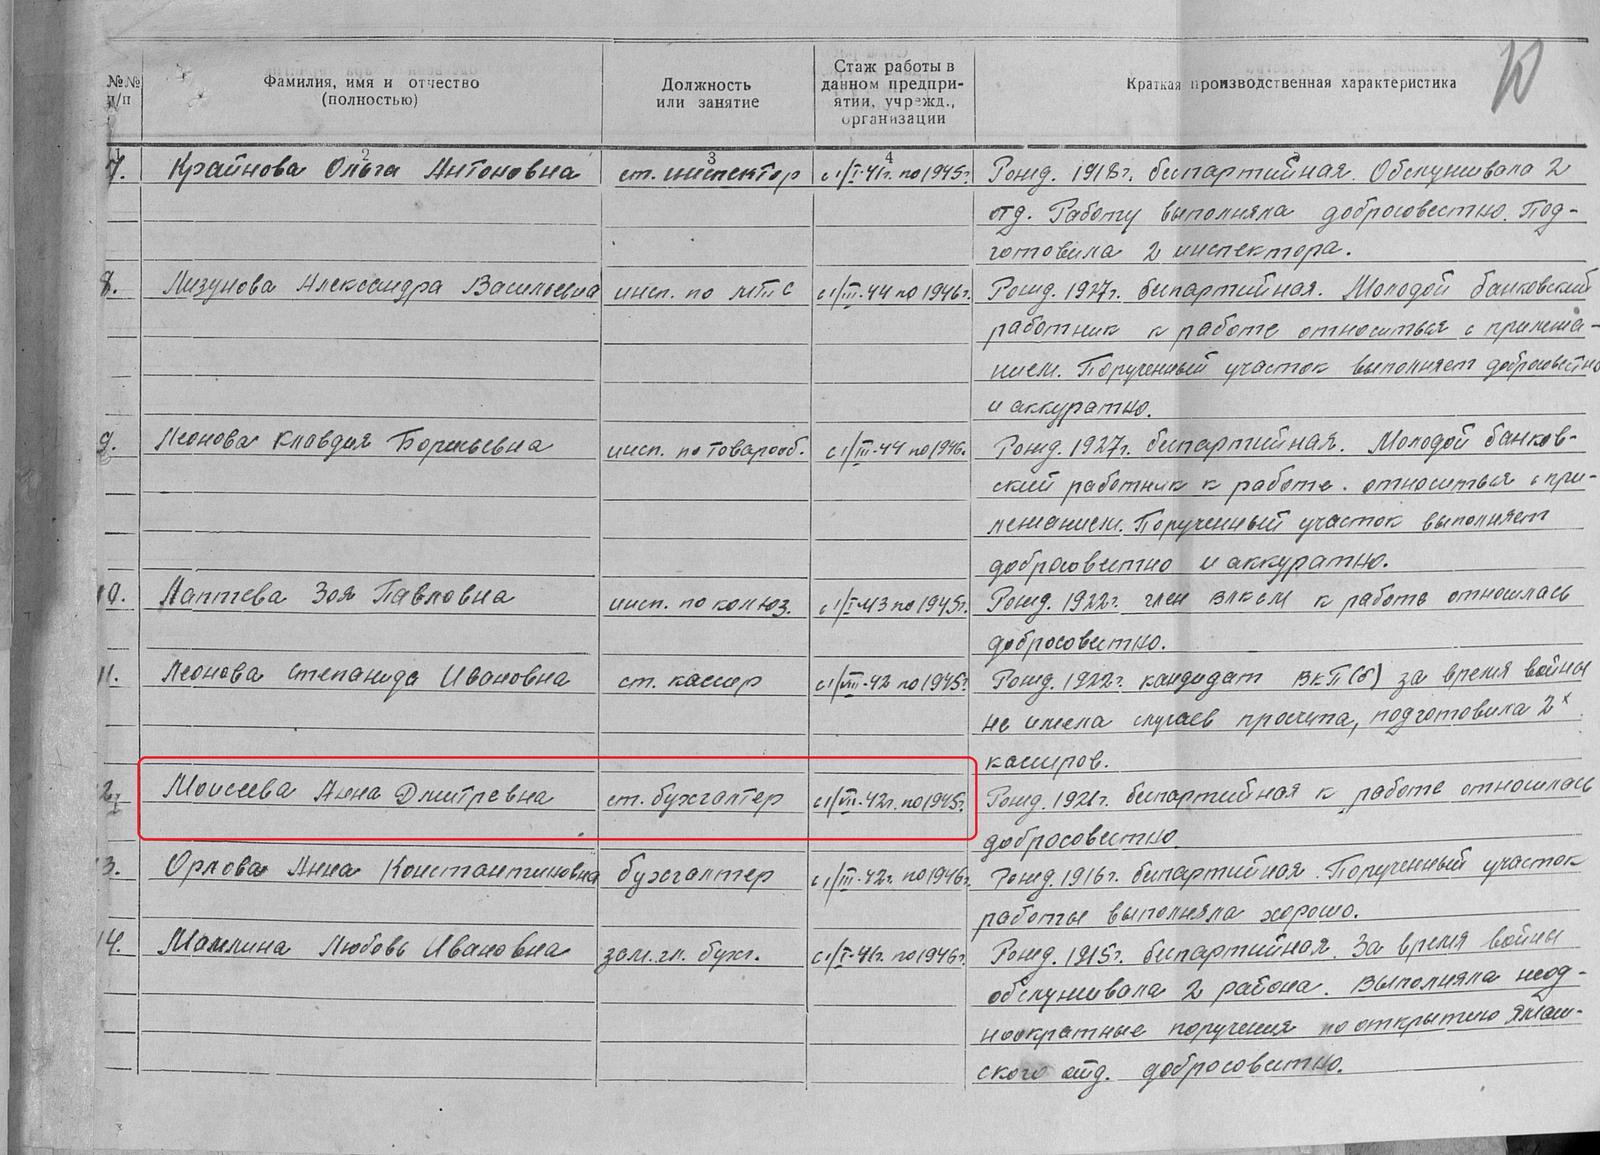 №№ п/п
Фамилия, имя и отчество
(полностью)
Должность
или занятие
Стаж работы в
данном предпри-
ятии, учрежд.,
организации
Краткая производственная характеристика
10
1 2 3 4 5
7. Крайнова Ольга Антоновна ст. инспектор с 1/I-41г. по 1945г. Рожд. 1918г. беспартийная. Обслуживала 2
отд. Работу выполняла добросовестно. Под-
готовила 2 инспектора.
8. Лизунова Александра Васильевна инсп. по МТС с 1/III-44 по 1946г. Рожд. 1927г. беспартийная. Молодой банковский
работник к работе относиться с прилежа-
нием. Порученный участок выполняет добросовестно
и аккуратно.
9. Леонова Клавдия Борисьевна инсп. по товарооб. с 1/III-44 по 1946г. Рожд. 1927г. беспартийная. Молодой банков-
ский работник к работе. относиться с при-
лежанием. Порученный участок выполняет
добросовестно и аккуратно.
10. Лаптева Зоя Павловна инсп. по колхоз. с 1/I-43 по 1945г. Рожд. 1922г. член ВЛКСМ к работе относилась
добросовестно.
11. Леонова Степанида Ивановна ст. кассир с 1/VIII-42 по 1945г. Рожд. 1922г. кандидат ВКП(б) за время войны
не имела случаев просчета, подготовила 2х
кассиров.
12. Моисеева Анна Дмитревна ст. бухгалтер с 1/VII-42г. по 1945г. Рожд. 1921г. беспартийная к работе относилась
добросовестно.
13. Орлова Анна Константиновна бухгалтер с 1/III-42г. по 1946г. Рожд. 1916г. беспартийная. Порученный участок
работы выполняла хорошо.
14. Мамлина Любовь Ивановна зам. гл. бухг. с 1/I-41г. по 1946г. Рожд. 1915г. беспартийная. За время войны
обслуживала 2 района. Выполняла неод-
нократные поручения по открытию
ского отд. добросовестно.